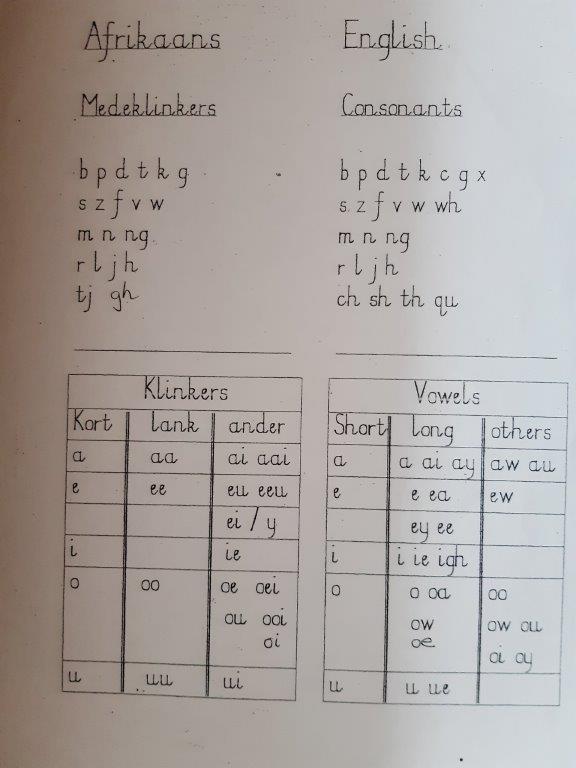 Afrikaans
Medeklinkers
b p d t k g
s z f v w
m n ng
r l j h
tj gh
Klinkers
Kort lank ander
a aa ai aai
e ee eu eeu
ei / y
i ie
o oo oe oei
ou ooi
oi
u uu ui
English
Consonants
b p d t k c g x
s z f v w wh
m n ng
r l j h
ch sh th qu
Vowels
Short long others
a a ai ay aw au
e e ea ew
ey ee
i i ie igh
o o oa oo
ow ow ou
oe
oi oy
u u ue